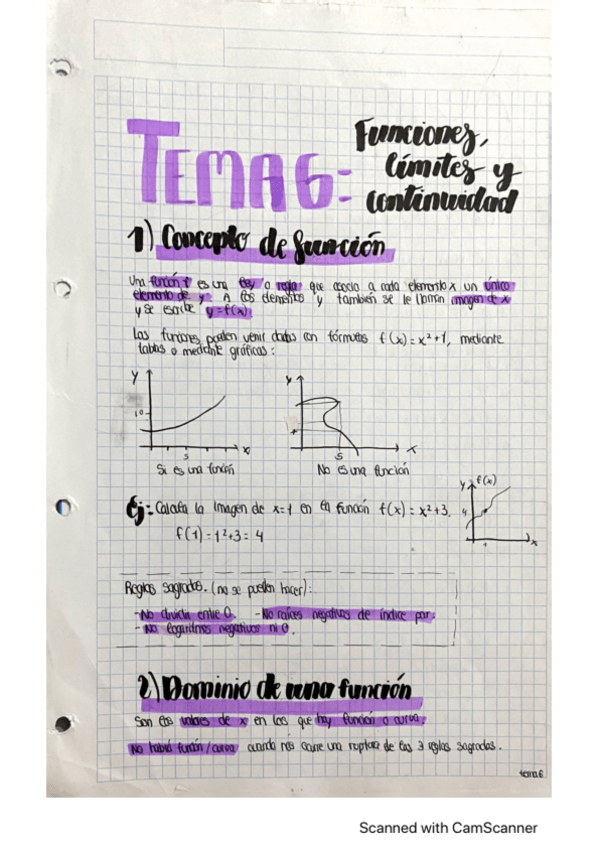 TEMA 6:
Funciones,
límites y
continuidad
1) Concepto de función
Una función f es una ley o regla que asocia a cada elemento x un único
elemento de y. A los elementos y también se le llaman imagen de x
y se escribe y=f(x).
Las funciones pueden venir dadas con fórmulas f(x)=x²+1, mediante
tablas o mediante gráficas:
y
10
5
x
Si es una función
y
5
x
No es una función
Ej: Calcula la imagen de x=1 en la función f(x)=x²+3.
f(1)=1²+3=4
y
f(x)
4
1
x
Reglas sagradas. (no se pueden hacer):
-No dividir entre 0. -No raíces negativas de índice par.
-No logaritmos negativos ni 0.
2) Dominio de una función
Son los valores de x en los que hay función o curva.
No habrá función/curva cuando nos ocurre una ruptura de las 3 reglas sagradas.
tema 6
Scanned with CamScanner